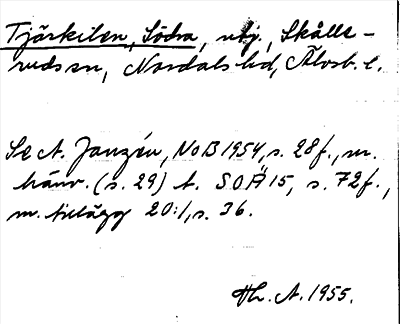 Tjärkilen, Södra, ubj., Skålle-
ruds sn, Nordals hd, Älvsb. l.
Se A. Janzén, NoB 1954, s. 28 f., m.
hänv. (s. 29) t. SOÄ 15, s. 72 f.,
m. tillägg 20:1, s. 36.
Hh. A. 1955.